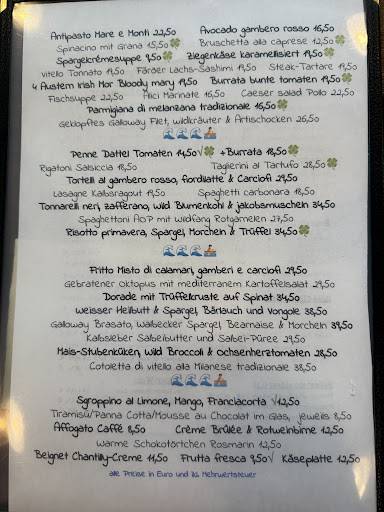 Antipasto Mare e Monti 22,50 Avocado gambero rosso 16,50
Spinacino mit Grana 15,50🍀 Bruschetta alla caprese 12,50🍀
Spargelcrèmesuppe 9,50🍀 Ziegenkäse karamellisiert 19,50🍀
Vitello Tonnato 19,50 Färöer Lachs-Sashimi 19,50 Steak-Tartare 19,50
4 Austern Irish Mor Bloody mary 19,50 Burrata bunte tomaten 19,50🍀
Fischsuppe 22,50 Alici Marinate 16,50 Caeser salad Pollo 22,50
Parmigiana di melanzana tradizionale 16,50🍀
Geklopftes Galloway Filet, wildkräuter & Artischocken 26,50
🌊🌊🌊🚣
Penne Dattel Tomaten 14,50√🍀 +Burrata 18,50🍀
Rigatoni Salsiccia 18,50 Taglierini al Tartufo 28,50🍀
Tortelli al gambero rosso, fiordilatte & Carciofi 29,50
Lasagne Kalbsragout 19,50 Spaghetti carbonara 18,50
Tonnarelli neri, zafferano, wild Blumenkohl & jakobsmuscheln 34,50
Spaghettoni AOP mit wildfang Rotgarnelen 27,50
Risotto primavera, Spargel, Morcheln & Trüffel 34,50🍀
🌊🌊🌊🚣
Fritto Misto di calamari, gamberi e carciofi 29,50
Gebratener Oktopus mit mediterranem Kartoffelsalat 29,50
Dorade mit Trüffelkruste auf Spinat 34,50
weisser Heilbutt & Spargel, Bärlauch und Vongole 38,50
Galloway Brasato, Walbecker Spargel, Bearnaise & Morcheln 39,50
Kalbsleber Salbeibutter und Salbei-Püree 29,50
Mais-Stubenküken, wild Broccoli & Ochsenherztomaten 28,50
Cotoletta di vitello alla Milanese tradizionale 38,50
🌊🌊🌊🚣
Sgroppino al Limone, Mango, Franciacorta √12,50
Tiramisu/Panna Cotta/Mousse au Chocolat im Glas, jeweils 8,50
Affogato Caffé 8,50 Crème Brûlée & Rotweinbirne 12,50
warme Schokotörtchen Rosmarin 12,50
Beignet Chantilly-Creme 11,50 Frutta fresca 9,50√ Käseplatte 12,50
alle Preise in Euro und inkl. Mehrwertsteuer